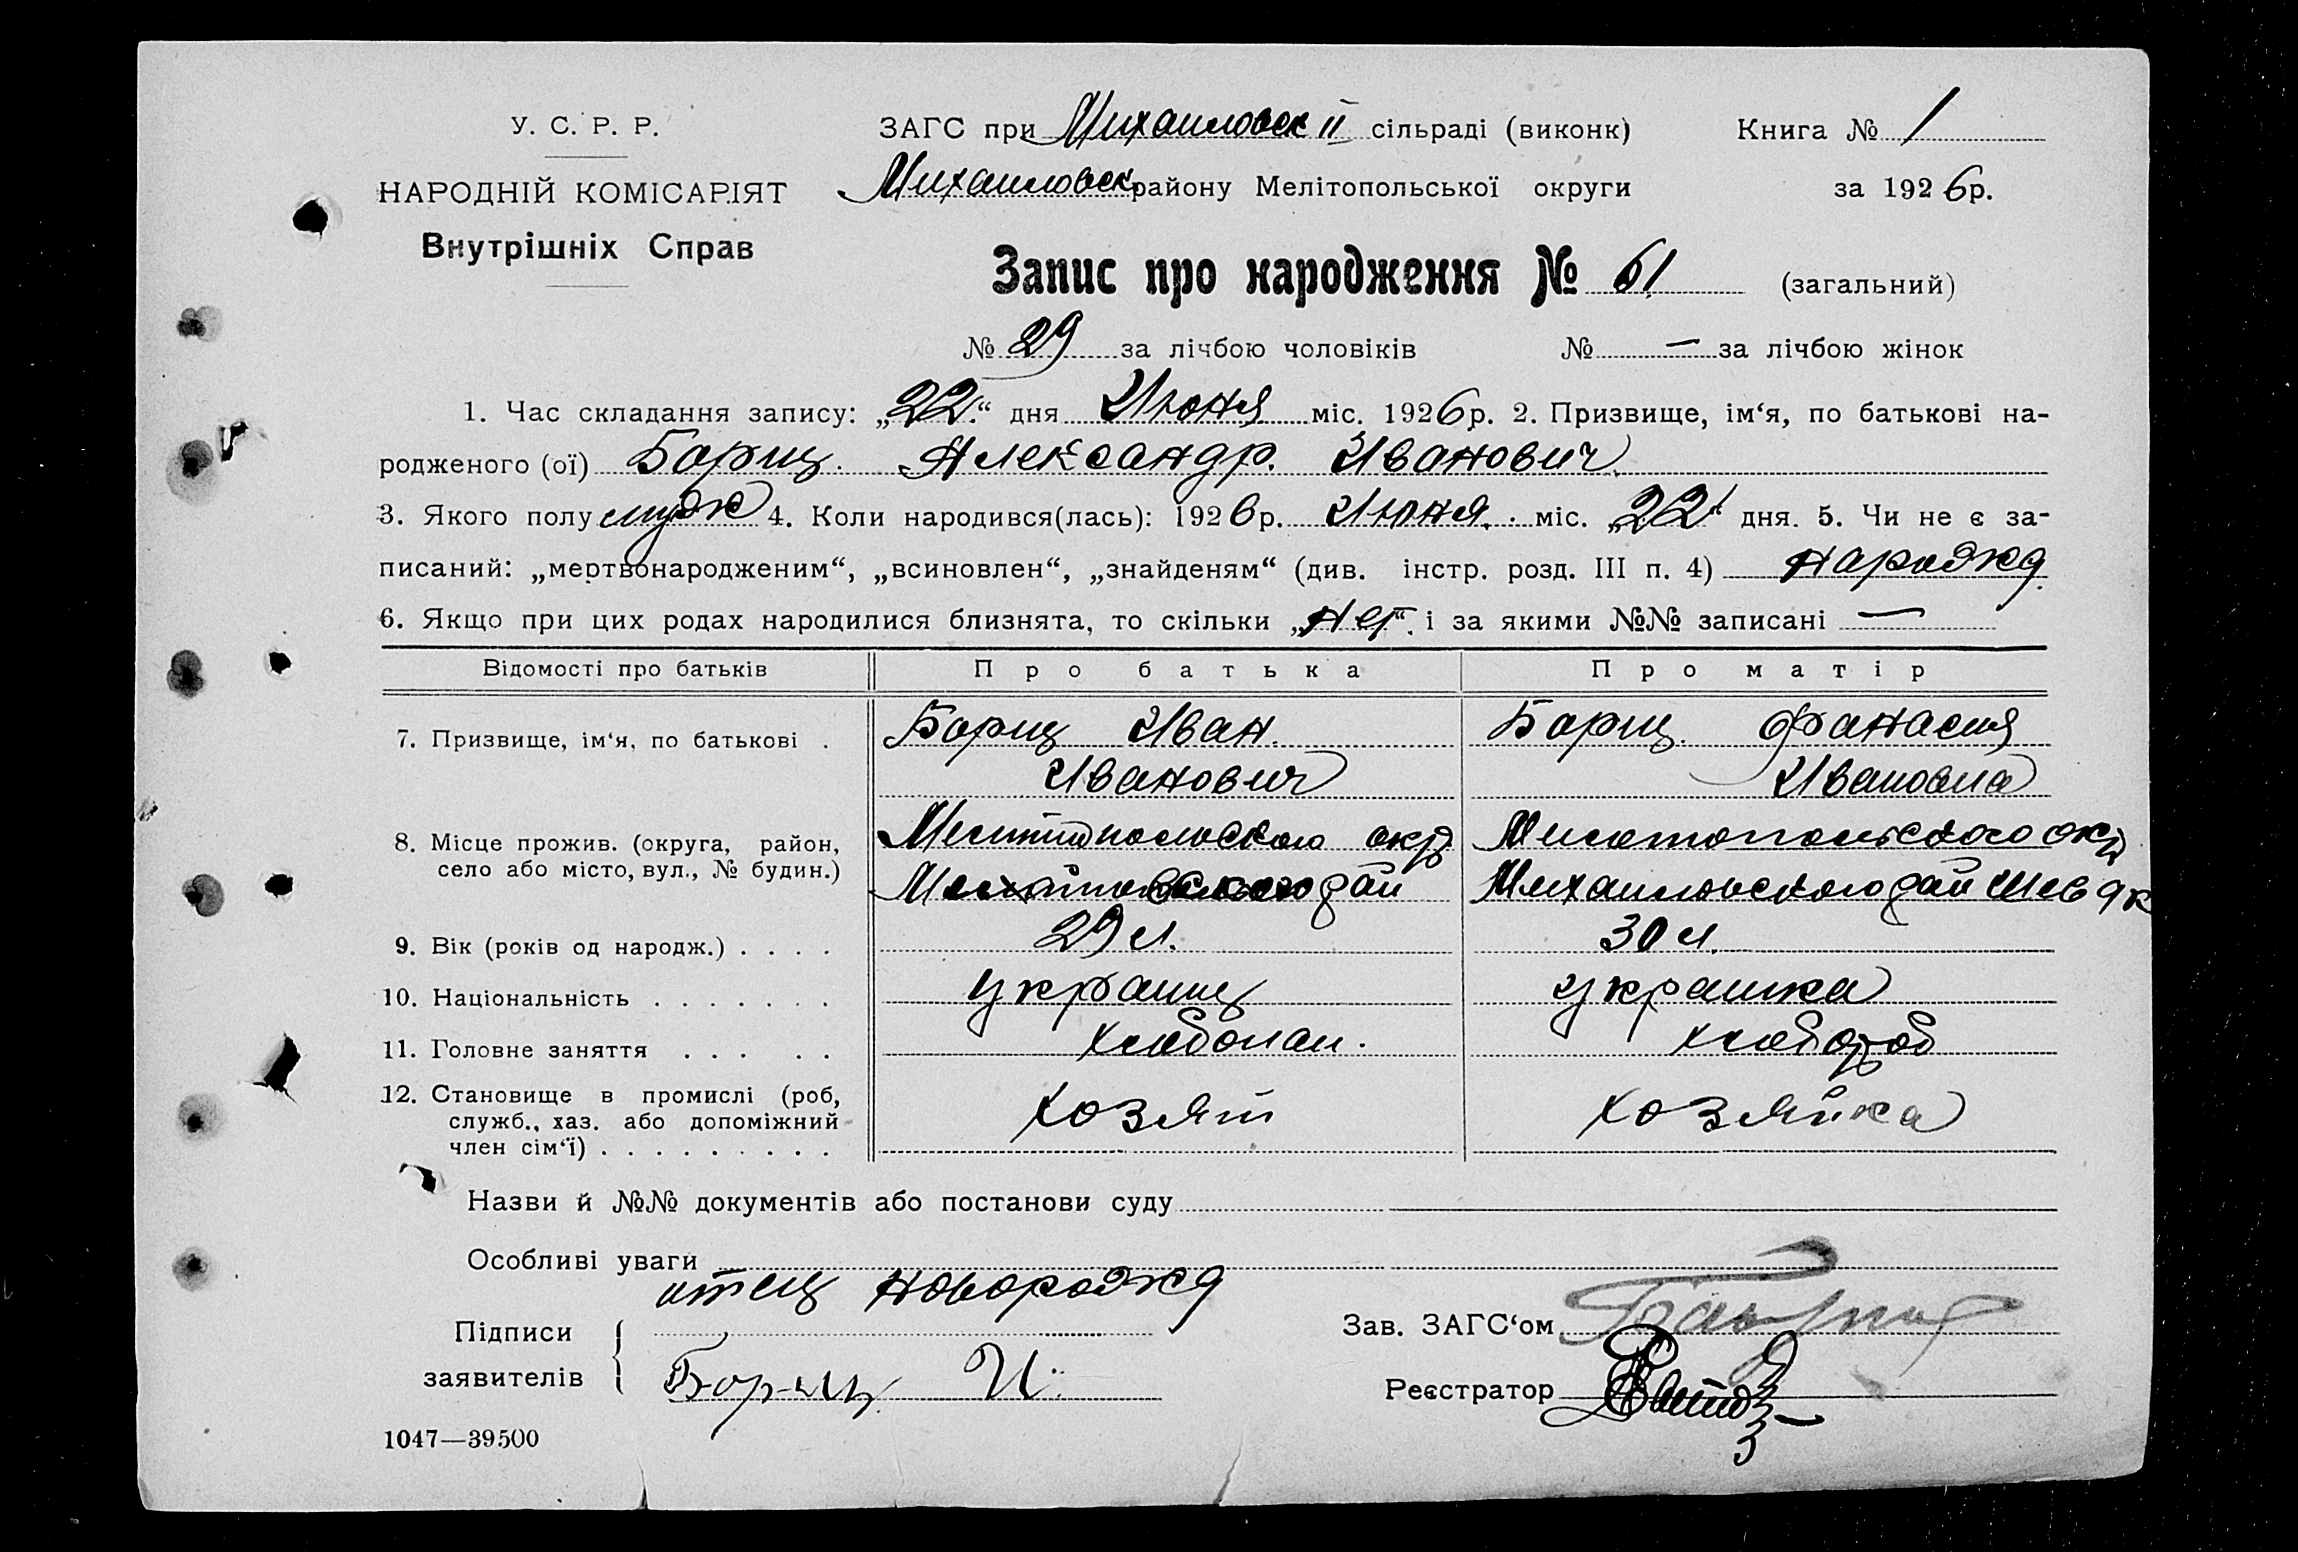 У. С. Р. Р.
НАРОДНІЙ КОМІСАРІЯТ
Внутрішніх Справ
ЗАГС при Михайловск II сільраді (виконк) Книга № 1
Михайловск району Мелітопольської округи за 1926р.
Запис про народження № 61 (загальний)
№ 29 за лічбою чоловіків № — за лічбою жінок
1. Час складання запису: „22“ дня Июня міс. 1926р. 2. Призвище, ім‘я, по батькові на-
родженого (ої) Борщ Александр Иванович
3. Якого полу мужс 4. Коли народився(лась): 1926р. Июня міс. „22“ дня. 5. Чи не є за-
писаний: „мертвонародженим“, „всиновлен“, „знайденям“ (див. інстр. розд. III п. 4)
6. Якщо при цих родах народилися близнята, то скільки „нет“ і за якими №№ записані —
Відомості про батьків Про батька Про матір
7. Призвище, ім‘я, по батькові . Борщ Иван Борщ Фанасия
Иванович Ивановна
8. Місце прожив. (округа, район, Мелитопольского окр Мелитопольского окр
село або місто, вул., № будин.) рай Михайловского рай
9. Вік (років од народж.) . . . . 29 л. 30 л.
10. Національність . . . . . . . украинец украинка
11. Головне заняття . . . . . хлебопаш. хлебороб
12. Становище в промислі (роб, хозяин хозяйка
служб., хаз. або допоміжний
член сім‘ї) . . . . . . . . .
Назви й №№ документів або постанови суду
Особливі уваги
отец новорожд
Підписи
заявителів Борщ И.
Зав. ЗАГС‘ом
Реєстратор
1047—39500